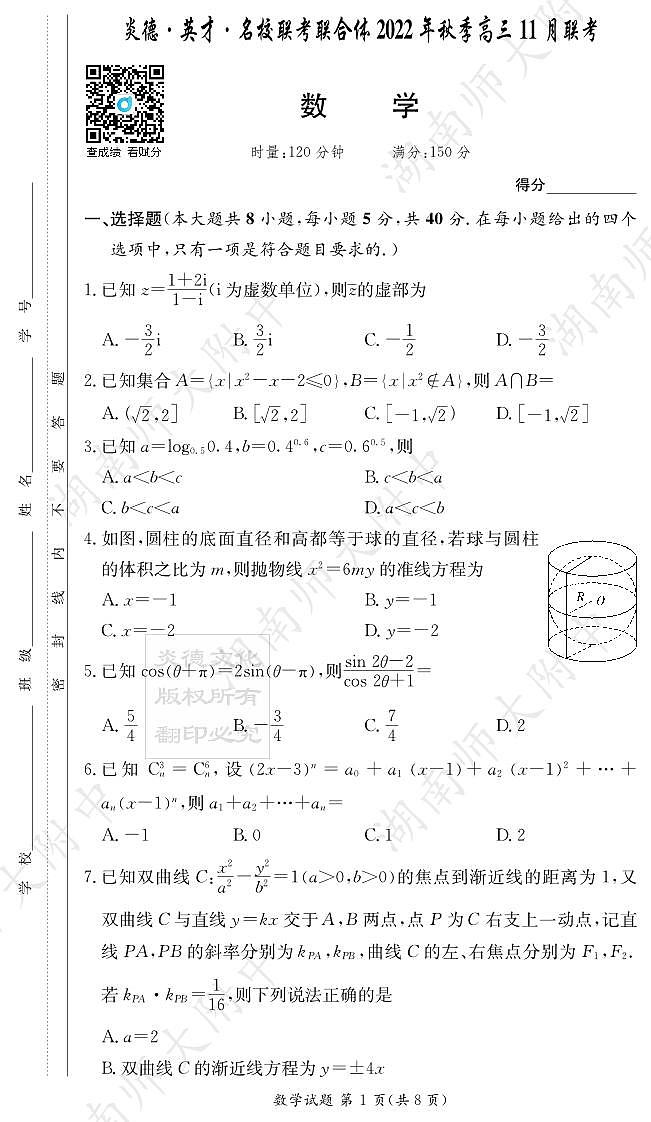 炎德·英才·名校联考联合体2022年秋季高三11月联考
数 学
查成绩 看赋分
时量:120分钟 满分:150分
得分
一、选择题(本大题共8小题,每小题5分,共40分.在每小题给出的四个
选项中,只有一项是符合题目要求的.)
1.已知z=\frac{1+2i}{1-i}(i为虚数单位),则\bar{z}的虚部为
A.-\frac{3}{2}i B.\frac{3}{2}i C.-\frac{1}{2} D.-\frac{3}{2}
2.已知集合A={x|x²-x-2≤0},B={x|x²∉A},则A∩B=
A.(√2,2] B.[√2,2] C.[-1,√2) D.[-1,√2]
3.已知a=log₀.₅0.4,b=0.4^{0.6},c=0.6^{0.5},则
A.a<b<c B.c<b<a
C.b<c<a D.a<c<b
4.如图,圆柱的底面直径和高都等于球的直径,若球与圆柱
的体积之比为m,则抛物线x²=6my的准线方程为
A.x=-1 B.y=-1
C.x=-2 D.y=-2
R O
5.已知cos(θ+π)=2sin(θ-π),则\frac{sin 2θ-2}{cos 2θ+1}=
A.\frac{5}{4} B.-\frac{3}{4} C.\frac{7}{4} D.2
炎德文化
版权所有
翻印必究
6.已知C_n^3=C_n^6,设(2x-3)^n=a₀+a₁(x-1)+a₂(x-1)²+⋯+
a_n(x-1)^n,则a₁+a₂+⋯+a_n=
A.-1 B.0 C.1 D.2
7.已知双曲线C:\frac{x²}{a²}-\frac{y²}{b²}=1(a>0,b>0)的焦点到渐近线的距离为1,又
双曲线C与直线y=kx交于A,B两点,点P为C右支上一动点,记直
线PA,PB的斜率分别为k_{PA},k_{PB},曲线C的左、右焦点分别为F₁,F₂.
若k_{PA}·k_{PB}=\frac{1}{16},则下列说法正确的是
A.a=2
B.双曲线C的渐近线方程为y=±4x
数学试题 第1页(共8页)
学校 班级 姓名 学号
密封线内不要答题
湖南师大附中
湖南师大附中
湖南师大附中
湖南师大附中
湖南师大附中